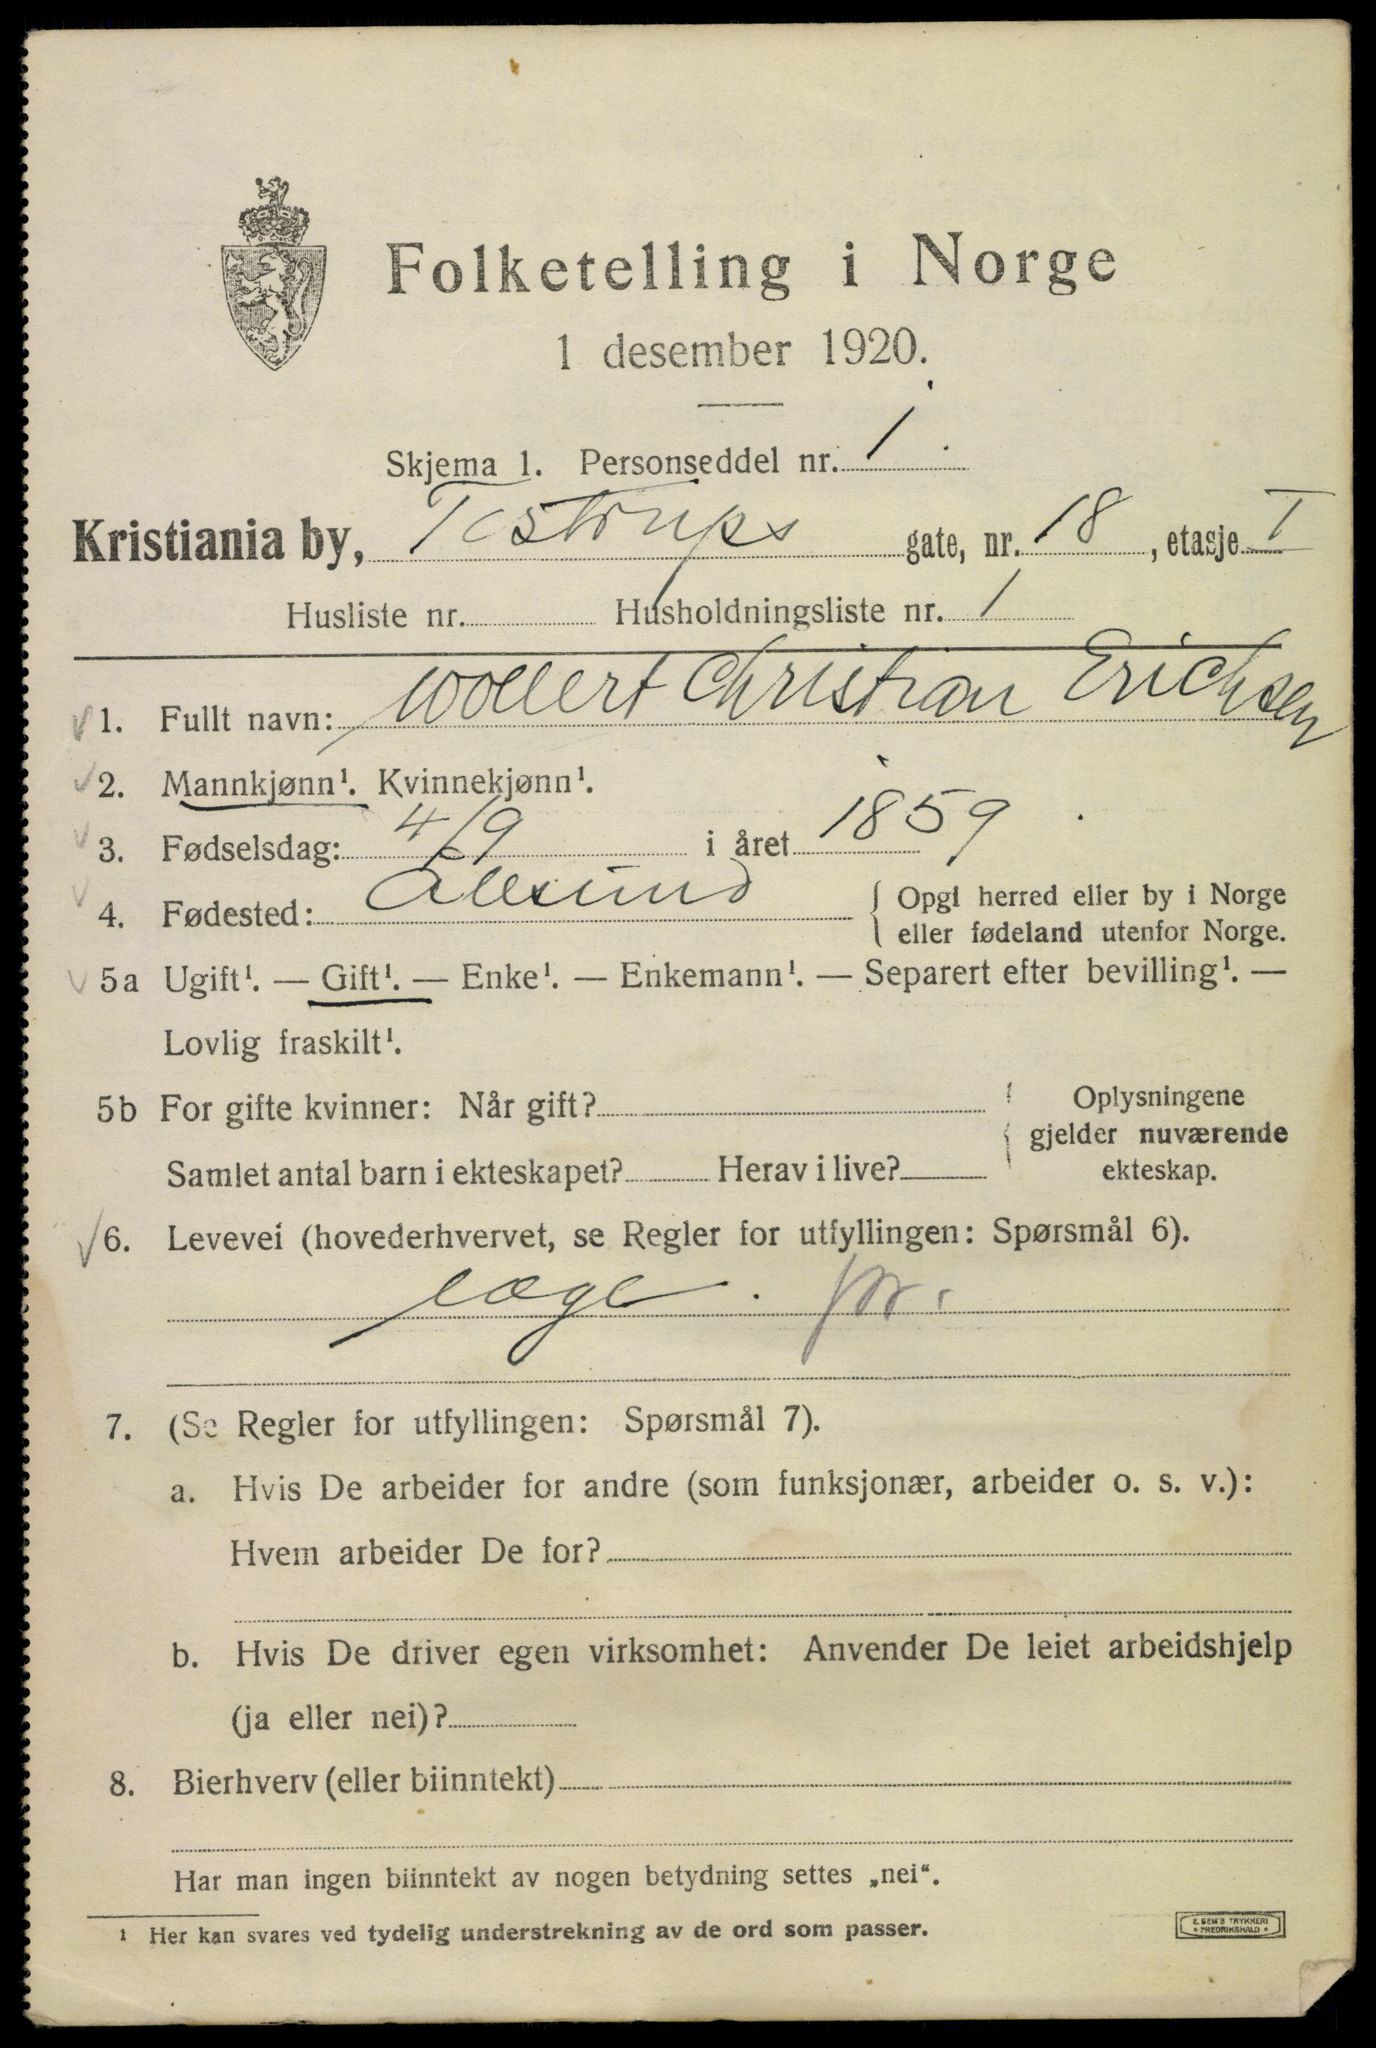 Folketelling i Norge
1 desember 1920.
Skjema 1. Personseddel nr. 1.
Kristiania by, Tostrups gate, nr. 18, etasje I
Husliste nr. Husholdningsliste nr. 1
1. Fullt navn: Wollert Christian Erichsen
2. Mannkjønn¹. Kvinnekjønn¹.
3. Fødselsdag: 4/9 i året 1859
4. Fødested: Ålesund { Opgi herred eller by i Norge
eller fødeland utenfor Norge.
5a Ugift¹. — Gift¹. — Enke¹. — Enkemann¹. — Separert efter bevilling¹. —
Lovlig fraskilt¹.
5b For gifte kvinner: Når gift? { Oplysningene
gjelder nuværende
Samlet antal barn i ekteskapet? Herav i live? ekteskap.
6. Levevei (hovederhvervet, se Regler for utfyllingen: Spørsmål 6).
læge. pr.
7. (Se Regler for utfyllingen: Spørsmål 7).
a. Hvis De arbeider for andre (som funksjonær, arbeider o. s. v.):
Hvem arbeider De for?
b. Hvis De driver egen virksomhet: Anvender De leiet arbeidshjelp
(ja eller nei)?
8. Bierhverv (eller biinntekt)
Har man ingen biinntekt av nogen betydning settes „nei“.
¹ Her kan svares ved tydelig understrekning av de ord som passer.
E. SEM'S TRYKKERI
FREDRIKSHALD